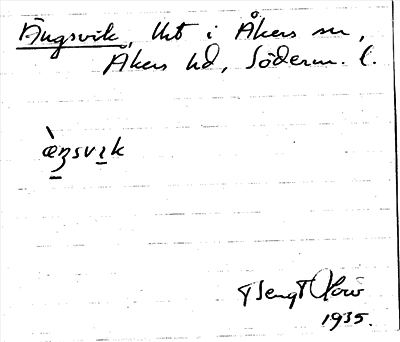 Ängsvik, Uht i Åkers sn,
Åkers hd, Söderm. l.
æ̀ŋsvɪk
Bengt
1935.